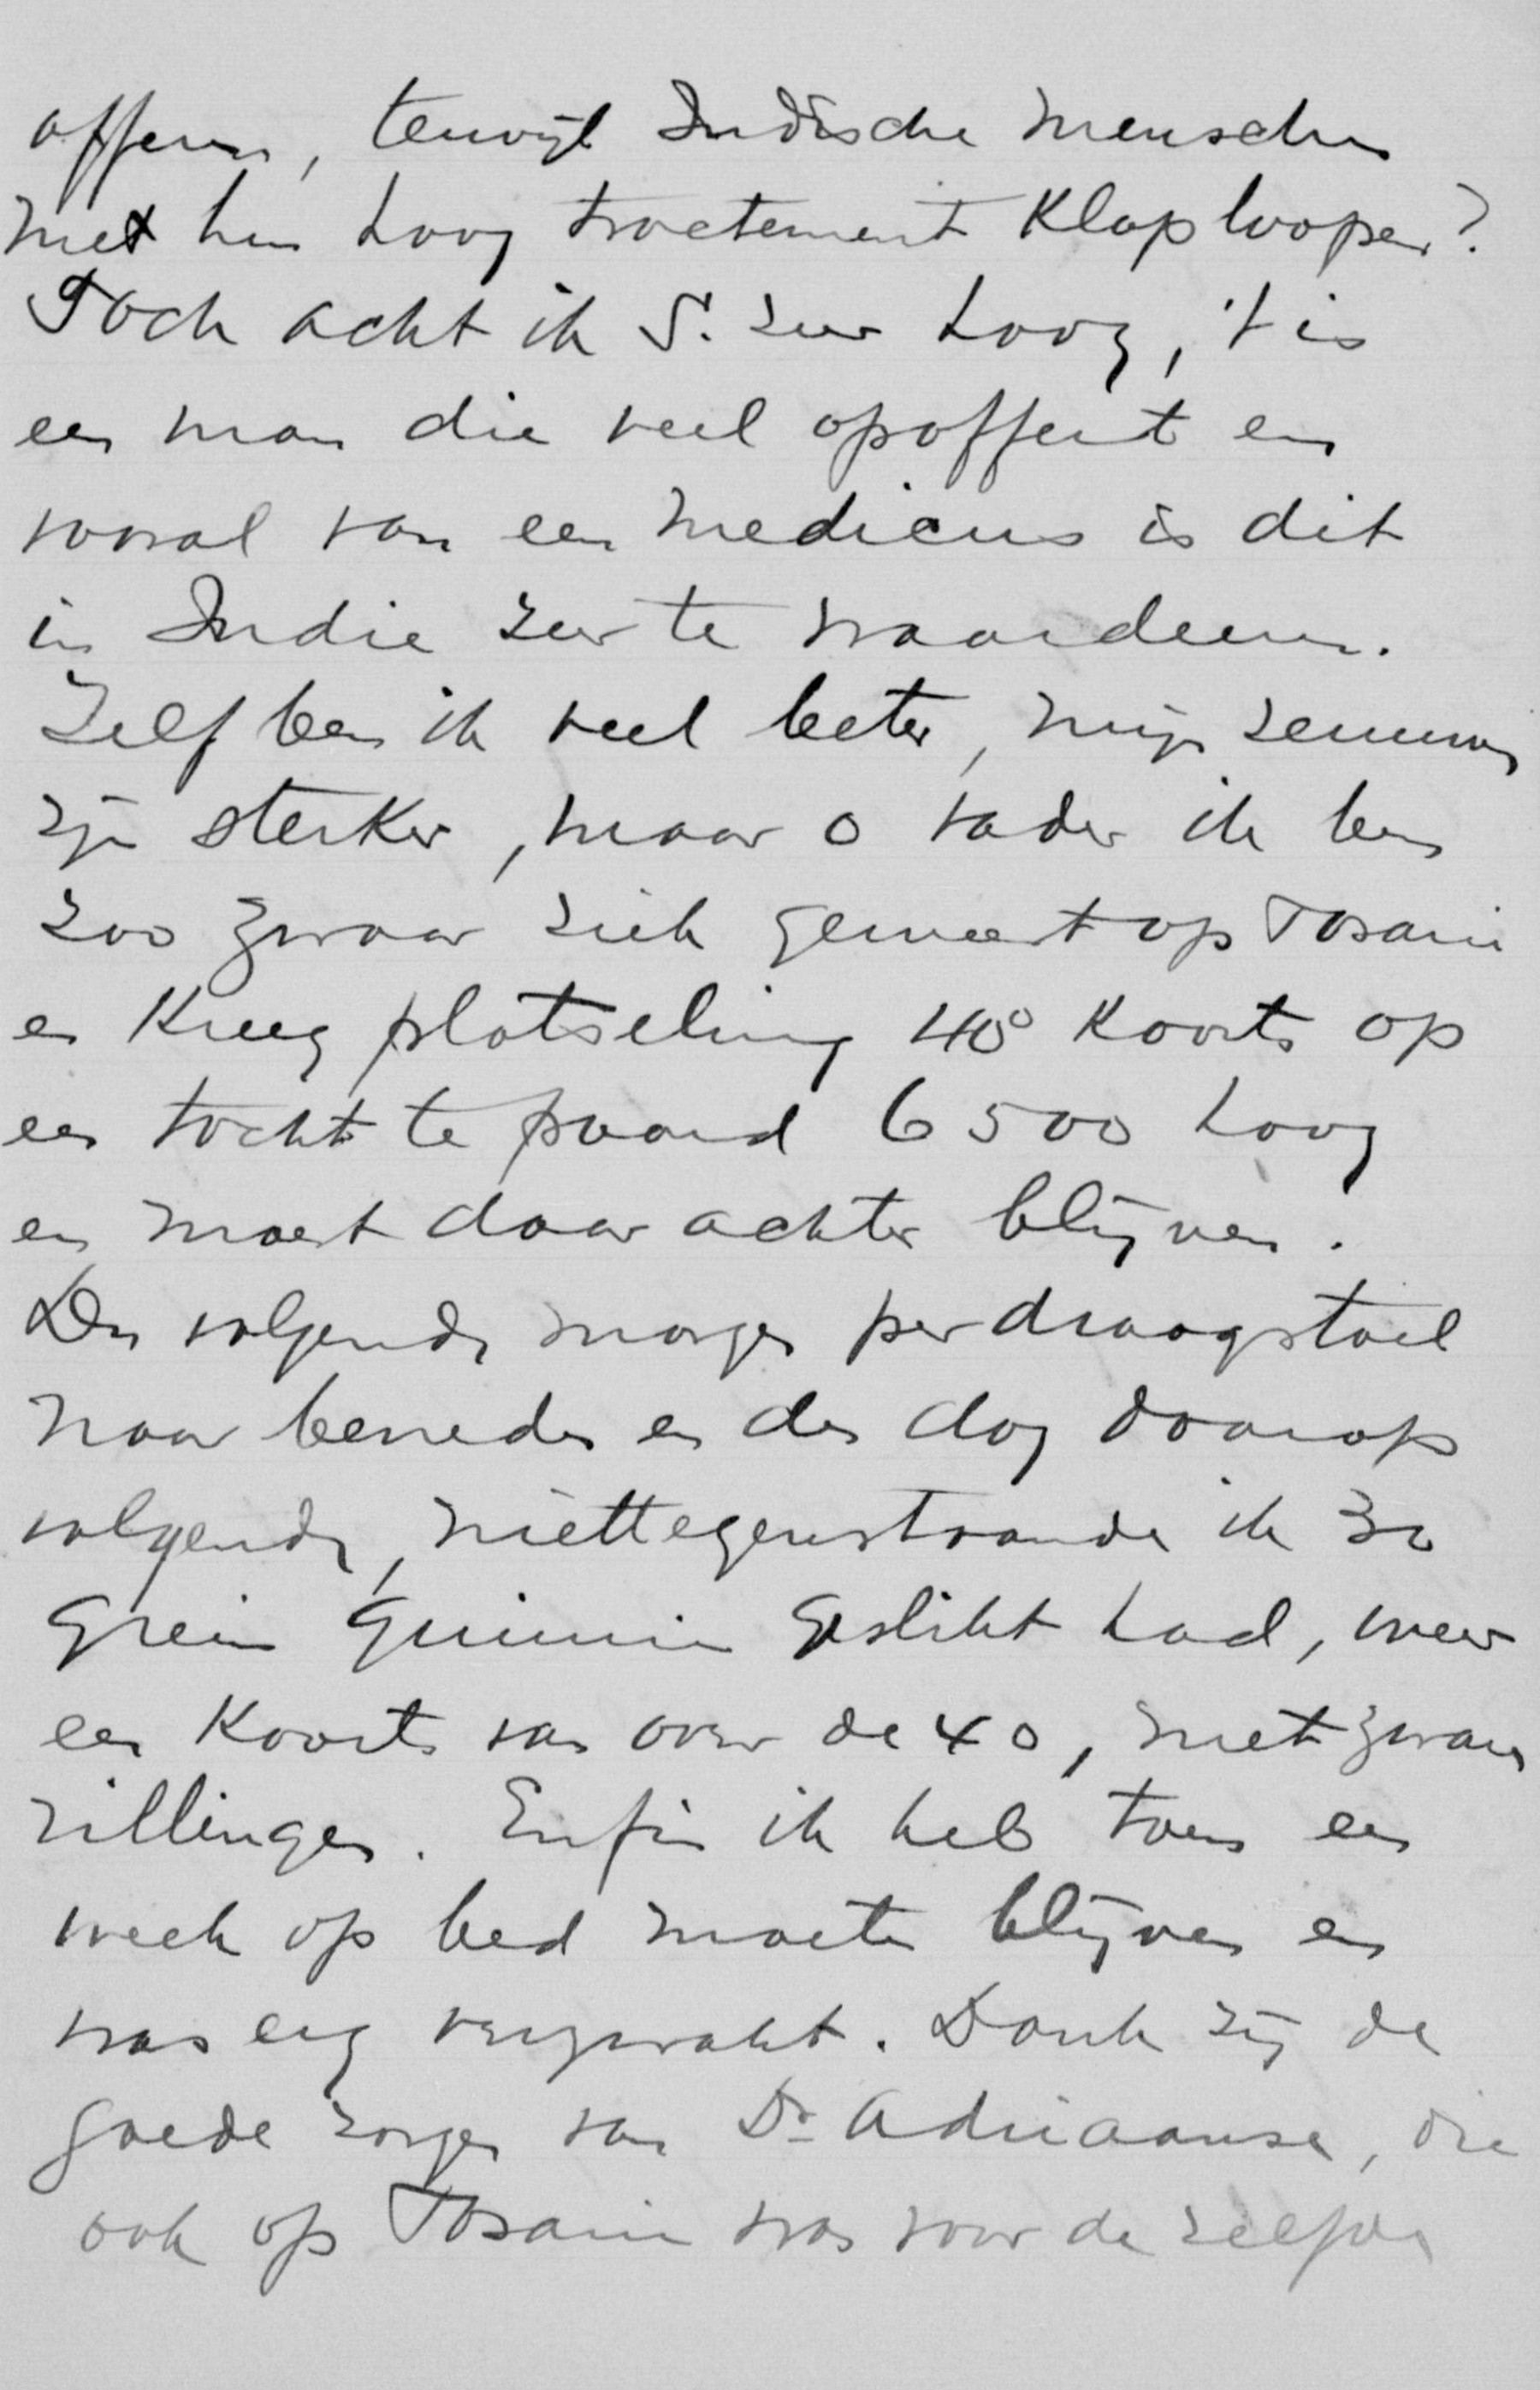 offeren, terwijl Indische menschen
met hun hoog tractement klaploopen?
Toch acht ik S. zeer hoog, 't is
een man die veel opoffert en
vooral van een medicus is dit
in Indie zeer te waardeeren.
Zelf ben ik veel beter, mijn zenuwen
zijn sterker, maar o vader ik ben
zoo zwaar ziek geweest op Tosari
en kreeg plotseling 40° koorts op
een tocht te paard 6500 hoog
en moest daar achter blijven.
Den volgende morgen per draagstoel
naar beneden en den dag daarop
volgende, niettegenstaande ik 30
grein quinine geslikt had, weer
een koorts van over de 40, met zware
rillingen. Enfin ik heb toen een
week op bed moeten blijven en
was erg verzwakt. Dank zij de
goede zorgen van Dr. Adriaanse, die
ook op Tosari was voor de zelfde